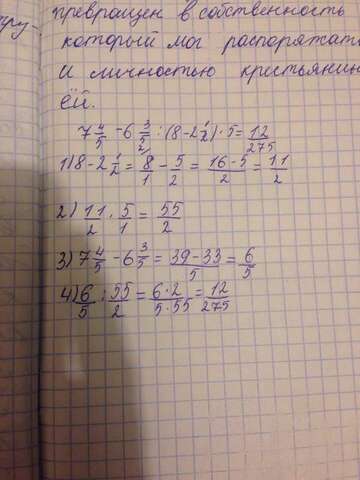 превращен в собственность
пру-
который мог распоряжат
и личностью крестьянин
ей.
7 4/5 - 6 3/5 : (8 - 2 1/2) · 5 = 12/275
1) 8 - 2 1/2 = 8/1 - 5/2 = 16-5/2 = 11/2
2) 11/2 · 5/1 = 55/2
3) 7 4/5 - 6 3/5 = 39-33/5 = 6/5
4) 6/5 : 55/2 = 6·2/5·55 = 12/275